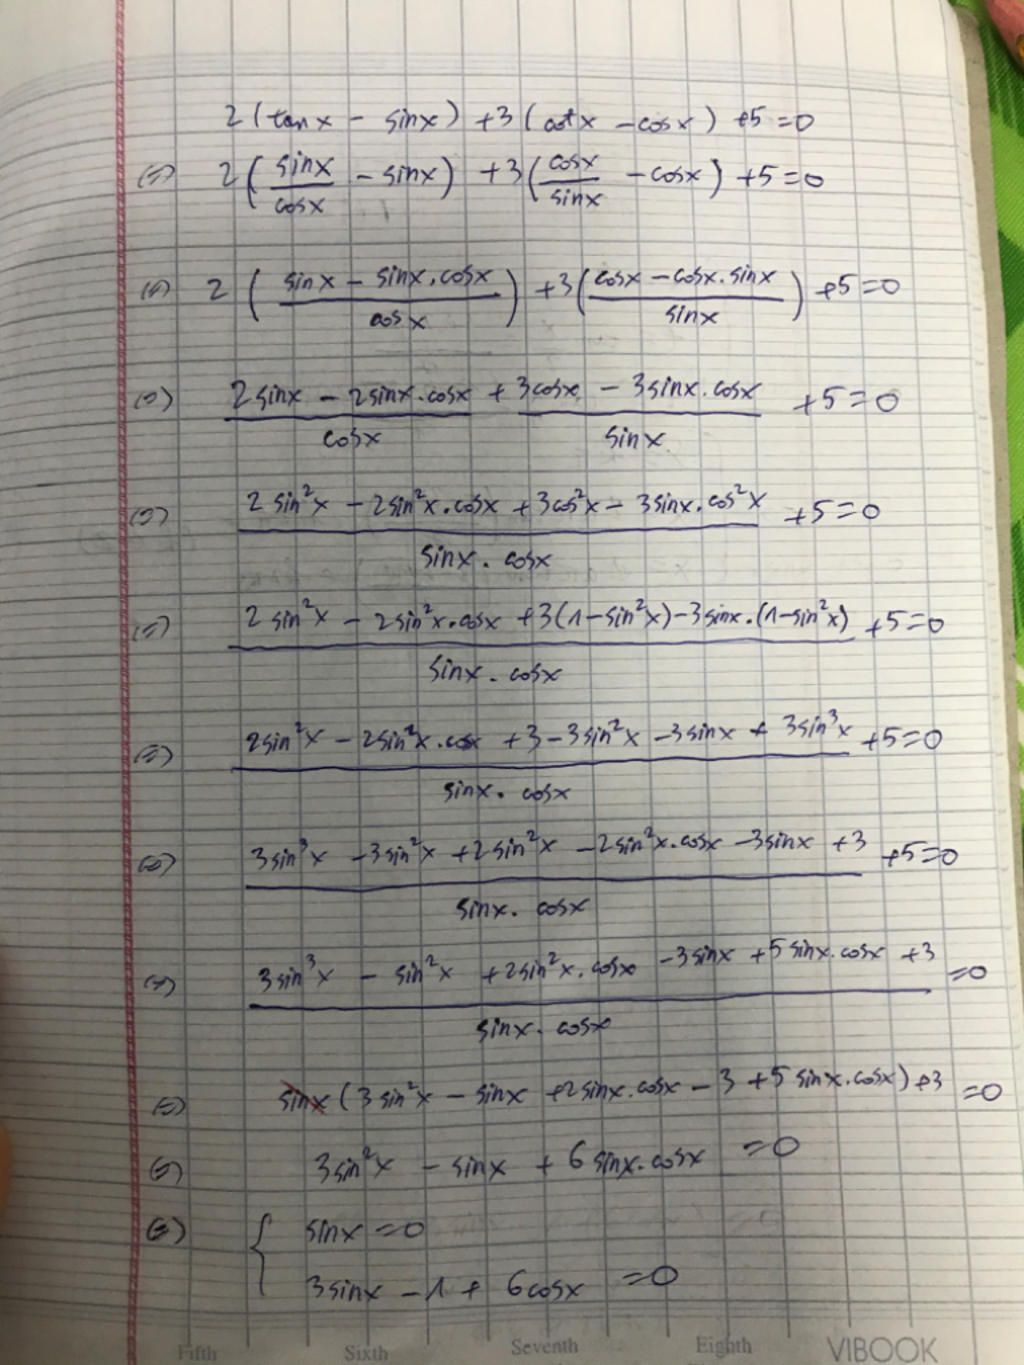 2(tanx - sinx) +3(cotx - cosx) +5=0
(=) 2(sinx/cosx - sinx) +3(cosx/sinx - cosx) +5=0
(=) 2((sinx - sinx.cosx)/cosx) +3((cosx - cosx.sinx)/sinx) +5=0
(=) (2sinx - 2sinx.cosx)/cosx + (3cosx - 3sinx.cosx)/sinx +5=0
(=) (2sin²x - 2sin²x.cosx +3cos²x - 3sinx.cos²x)/(sinx.cosx) +5=0
(=) (2sin²x - 2sin²x.cosx +3(1-sin²x) -3sinx.(1-sin²x))/(sinx.cosx) +5=0
(=) (2sin²x - 2sin²x.cosx +3 -3sin²x -3sinx + 3sin³x)/(sinx.cosx) +5=0
(=) (3sin³x -3sin²x +2sin²x -2sin²x.cosx -3sinx +3)/(sinx.cosx) +5=0
(=) (3sin³x - sin²x +2sin²x.cosx -3sinx +5sinx.cosx +3)/(sinx.cosx) =0
(=) sinx(3sin²x - sinx +2sinx.cosx - 3 +5sinx.cosx) +3 =0
(=) 3sin²x - sinx + 6sinx.cosx =0
(=) { sinx =0
3sinx - 1 + 6cosx =0
Fifth Sixth Seventh Eighth VIBOOK